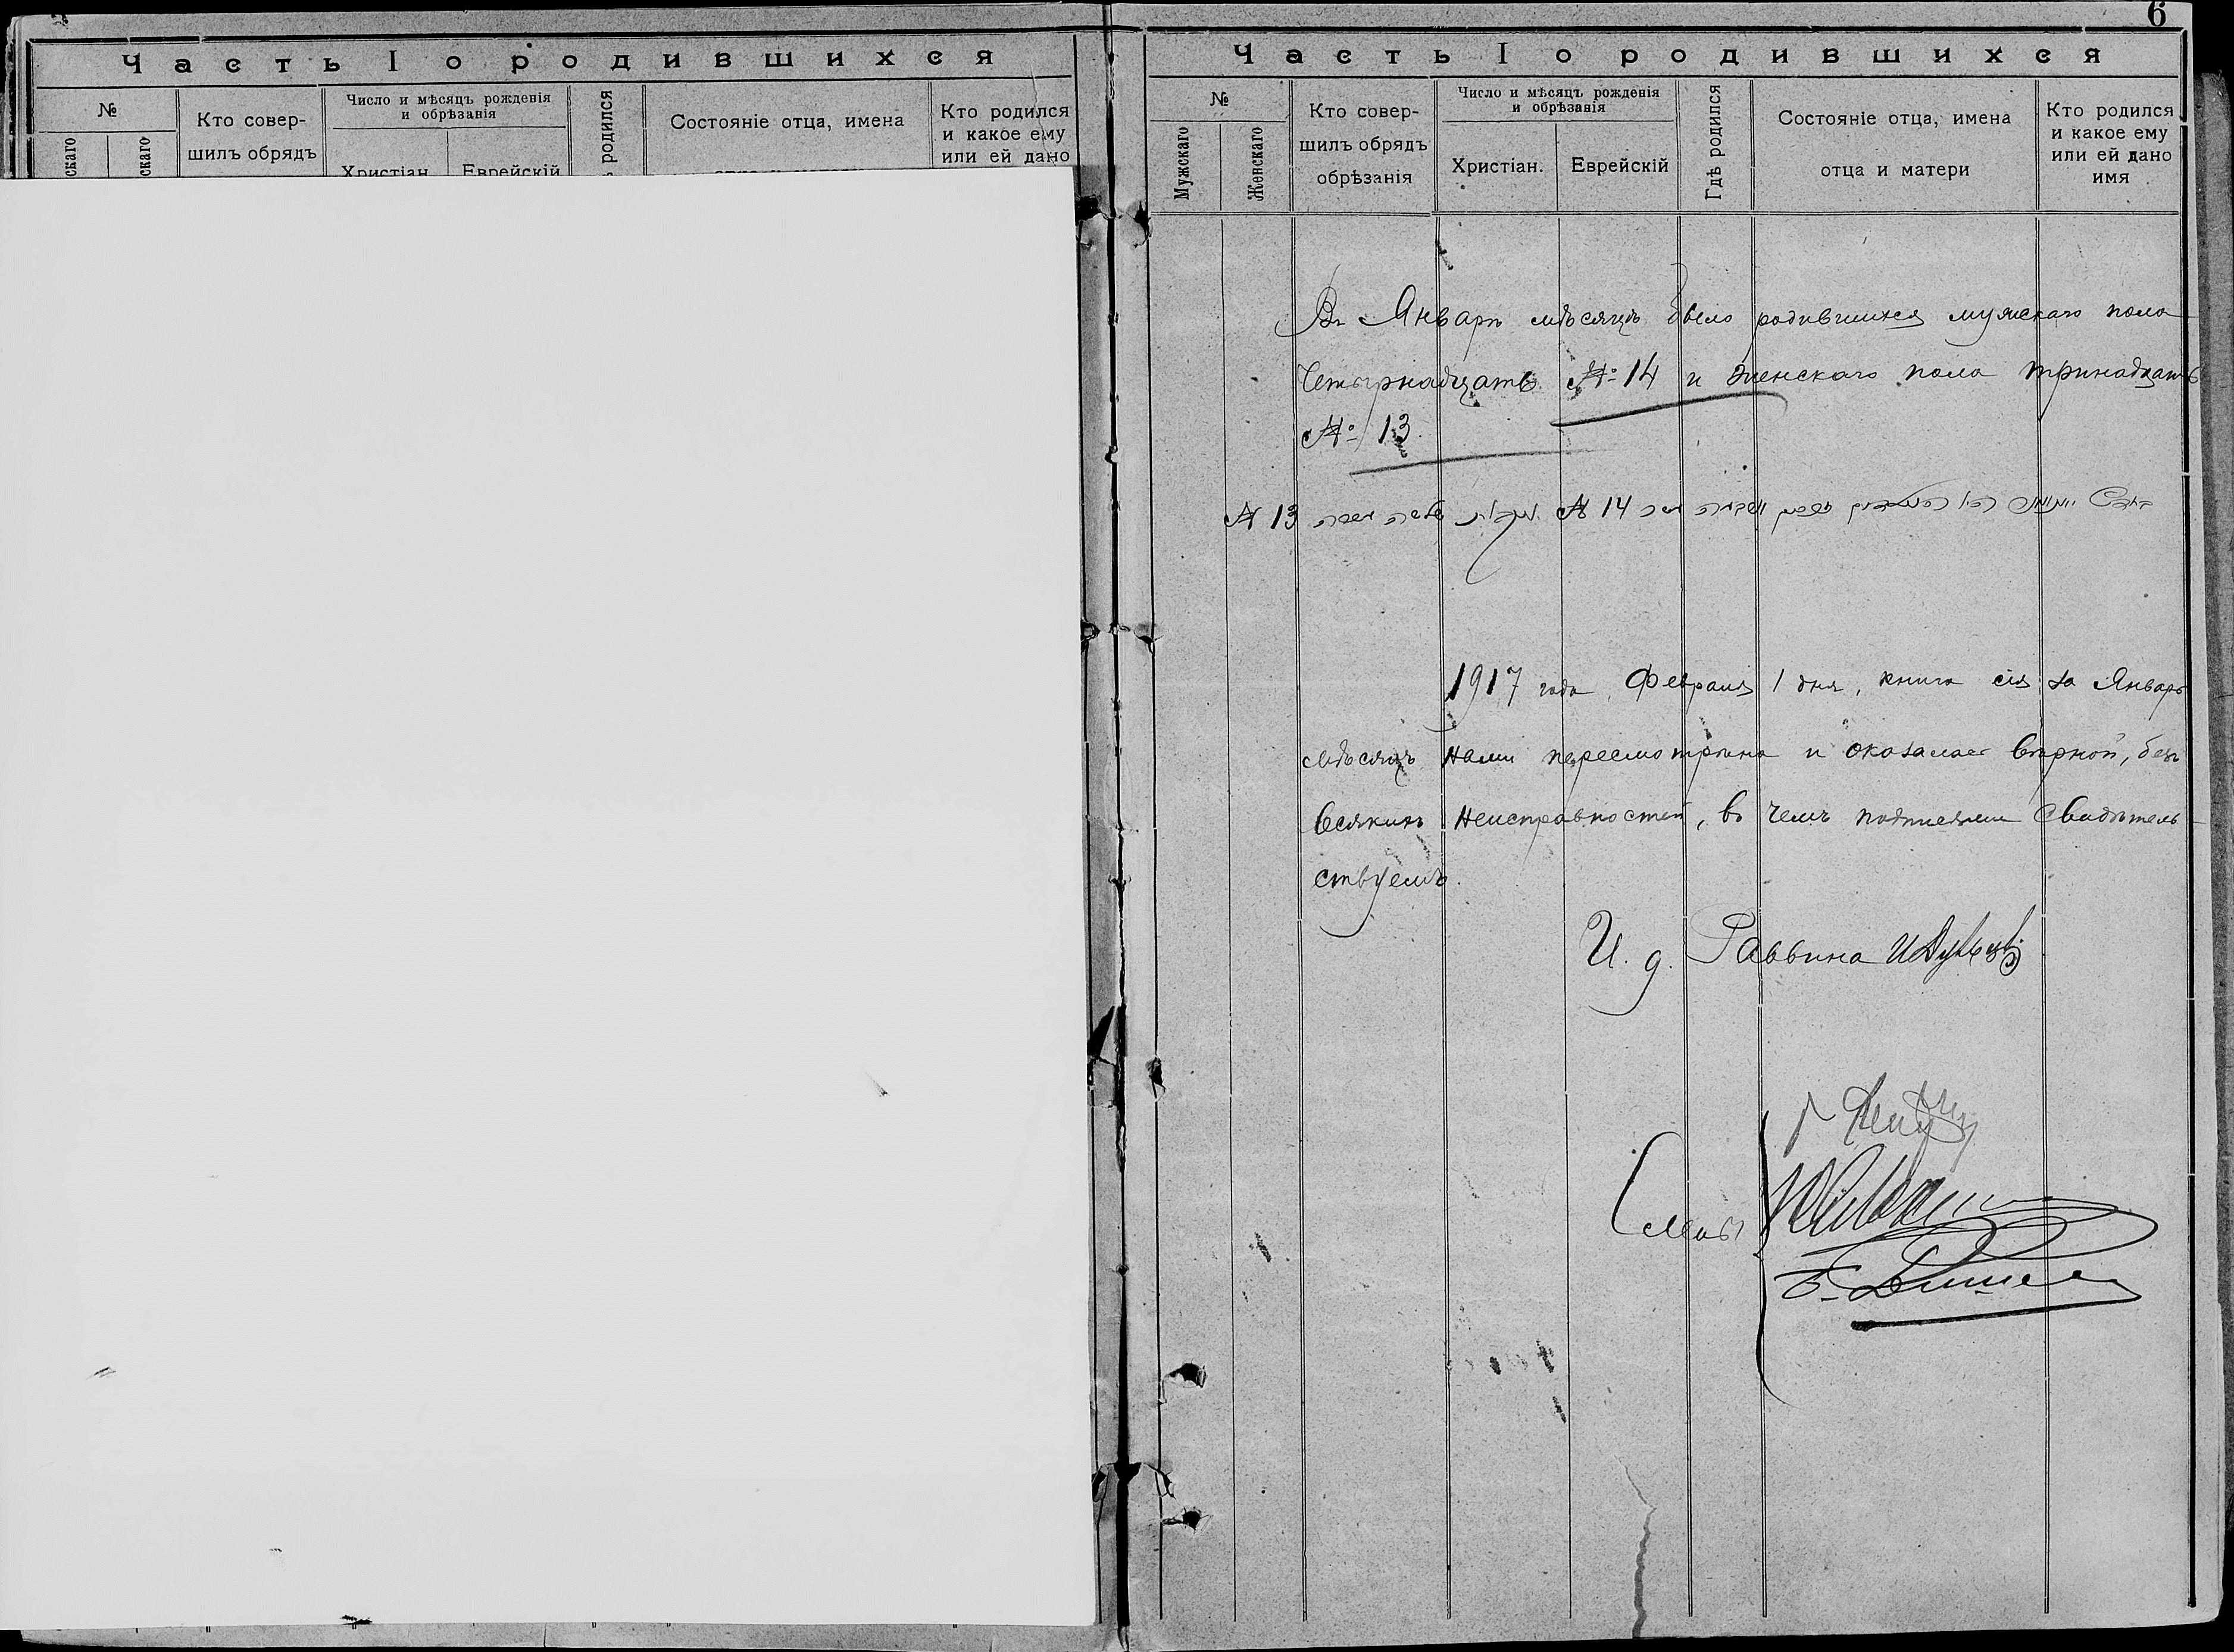 6
Часть I о родившихся
№
Кто совер-
шилъ обрядъ
Число и мѣсяцъ рожденія
и обрѣзанія
Христіан.
Еврейскій
родился
Состояніе отца, имена
Кто родился
и какое ему
или ей дано
скаго
скаго
Часть I о родившихся
№
Мужскаго
Женскаго
Кто совер-
шилъ обрядъ
обрѣзанія
Число и мѣсяцъ рожденія
и обрѣзанія
Христіан.
Еврейскій
Гдѣ родился
Состояніе отца, имена
отца и матери
Кто родился
и какое ему
или ей дано
имя
Въ Январѣ мѣсяцѣ было родившихся мужскаго пола
Четырнадцать № 14 и женскаго пола тринадцать
№ 13.
№ 14 № 13
1917 года, Февраля 1 дня, книга сія за Январь
мѣсяцъ нами пересмотрѣна и оказалась вѣрной, безъ
всякихъ неисправностей, въ чемъ подписями свидѣтель-
ствуемъ.
И. д. Раввина